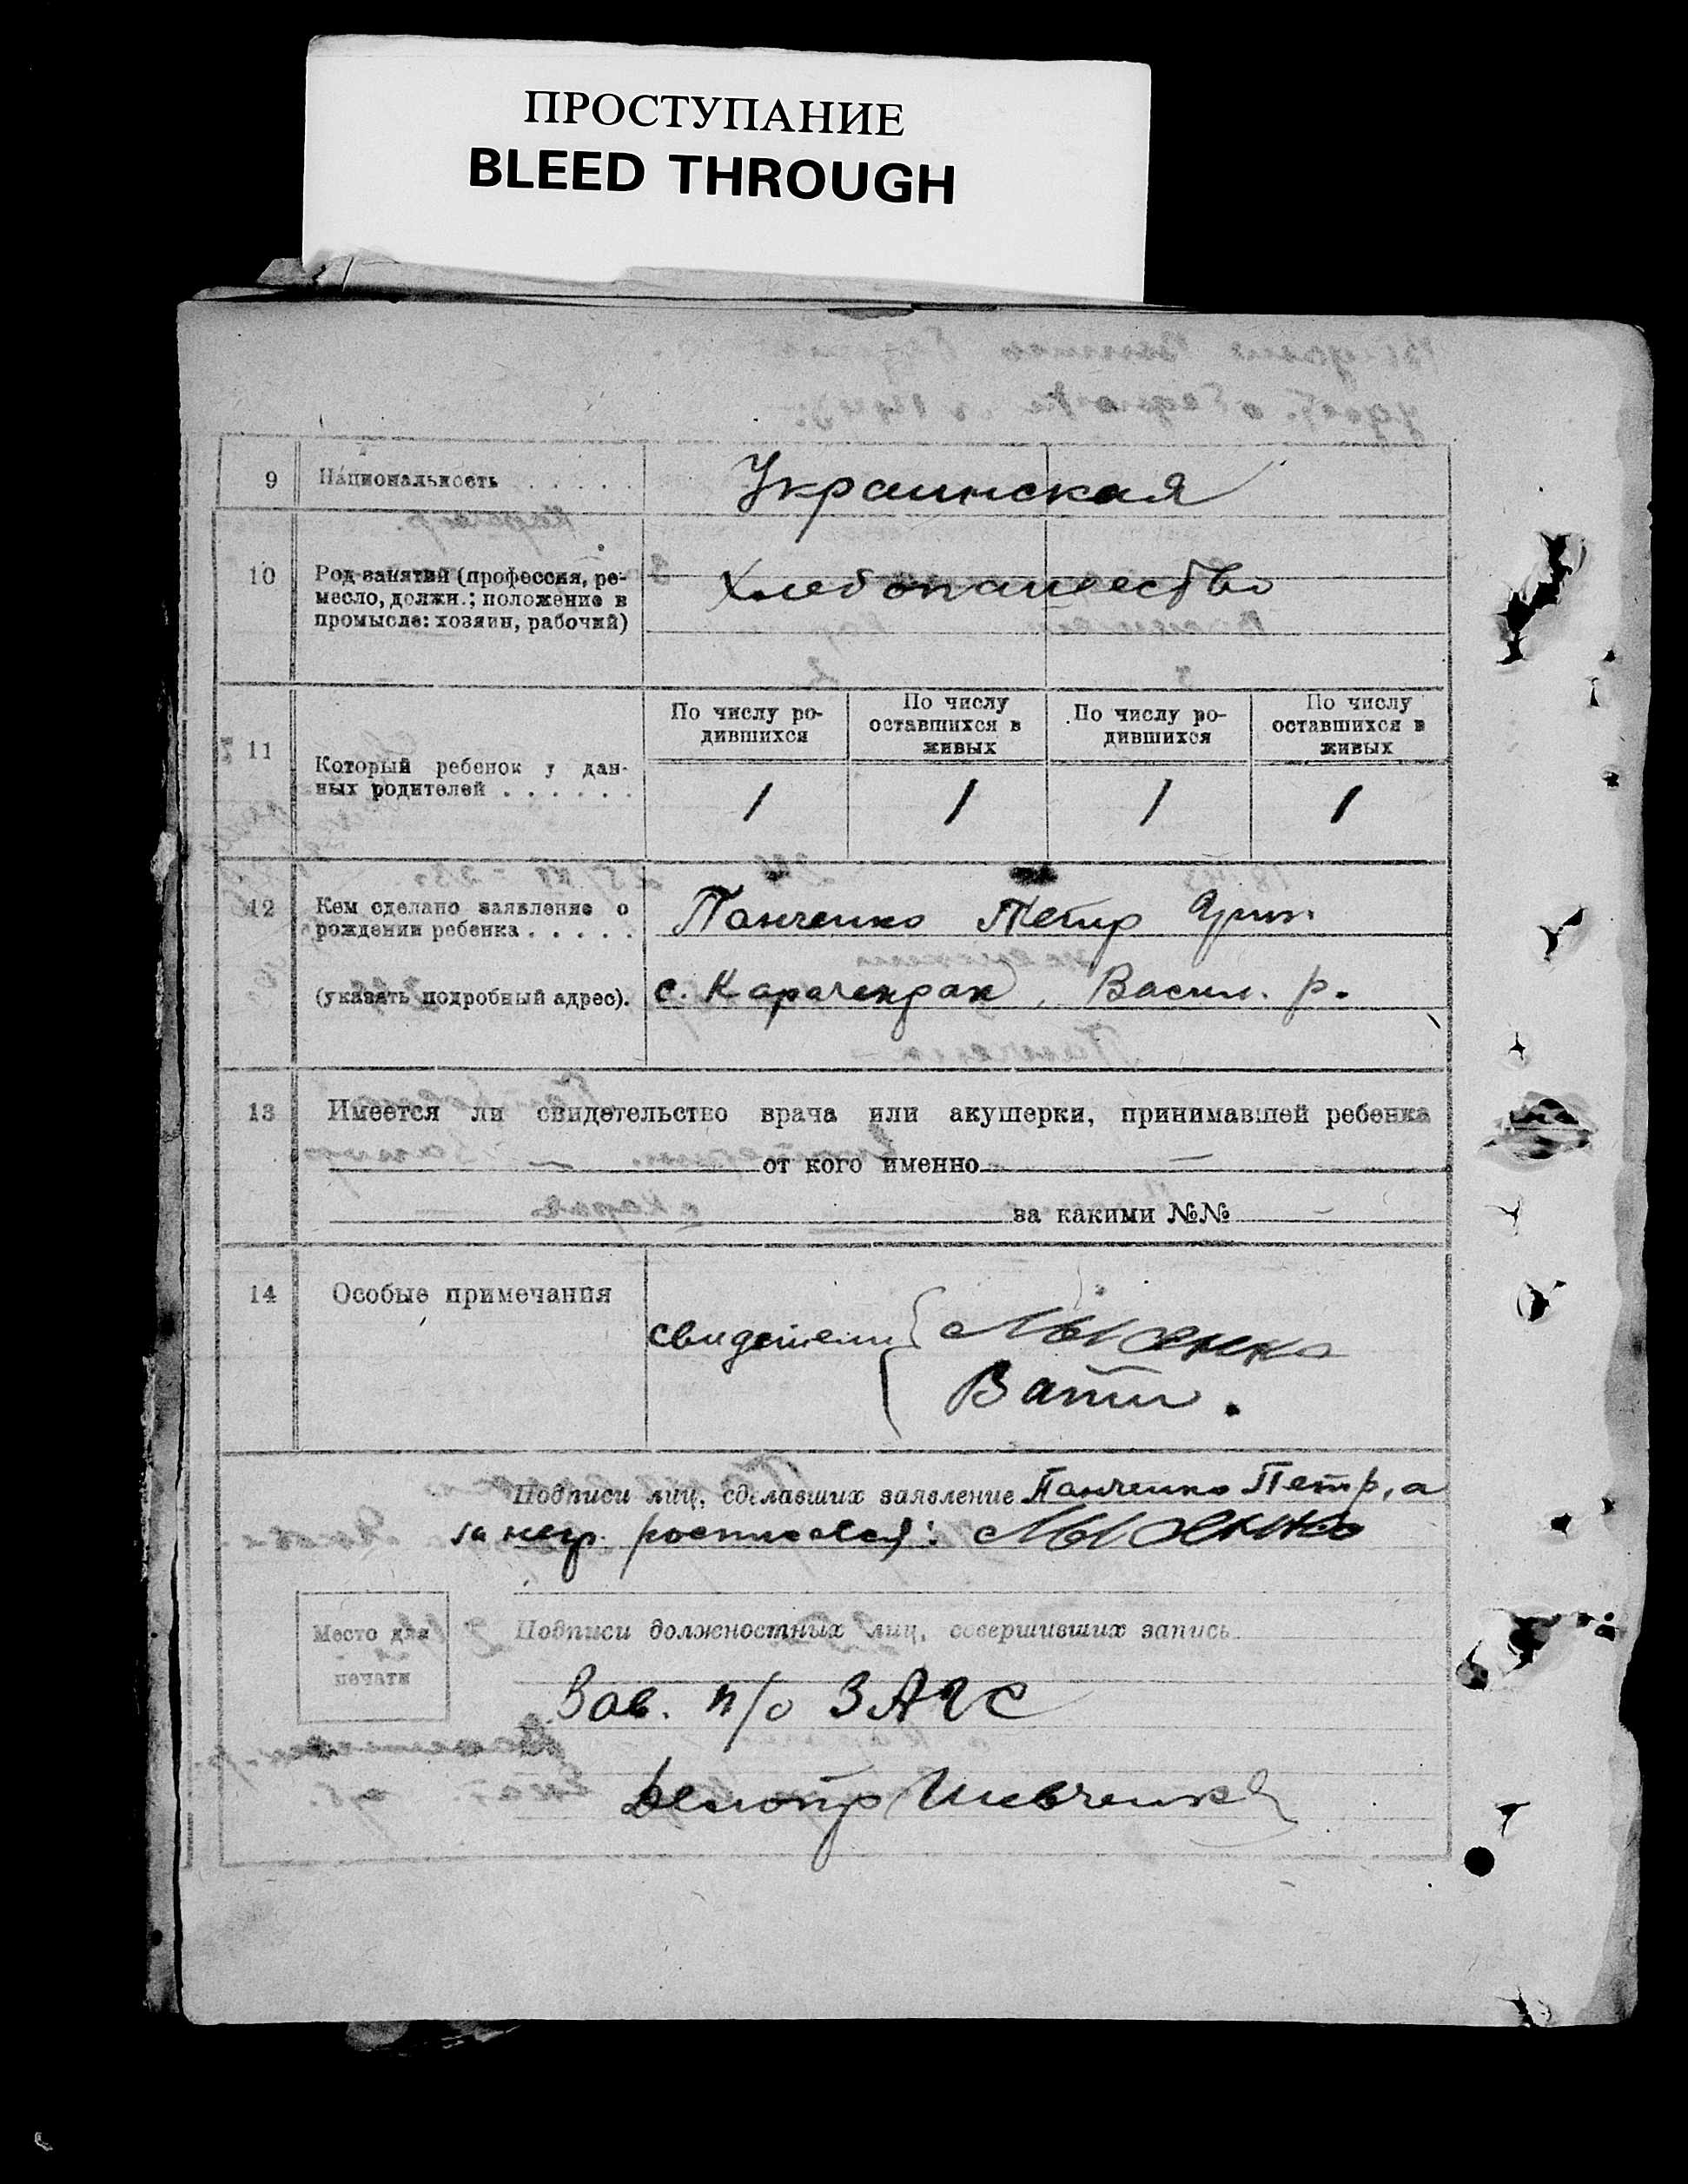 ПРОСТУПАНИЕ
BLEED THROUGH
9 Национальность . . . . . Украинская
10 Род занятий (профессия, ре-
месло, должн.; положение в
промысле: хозяин, рабочий)
Хлебопашество
11 Который ребенок у дан-
ных родителей . . . . . .
По числу ро-
дившихся
По числу
оставшихся в
живых
По числу ро-
дившихся
По числу
оставшихся в
живых
1 1 1 1
12 Кем сделано заявление о
рождении ребенка . . . . .
Панченко Петр
(указать подробный адрес).
с. Карачекрак, Васил. р.
13 Имеется ли свидетельство врача или акушерки, принимавшей ребенка
— от кого именно —
— за какими №№ —
14 Особые примечания
свидетели
Подписи лиц, сделавших заявление Панченко Петр, а
за негр. росписався:
Место для
печати
Подписи должностных лиц, совершивших запись
Зав. п/о ЗАГС